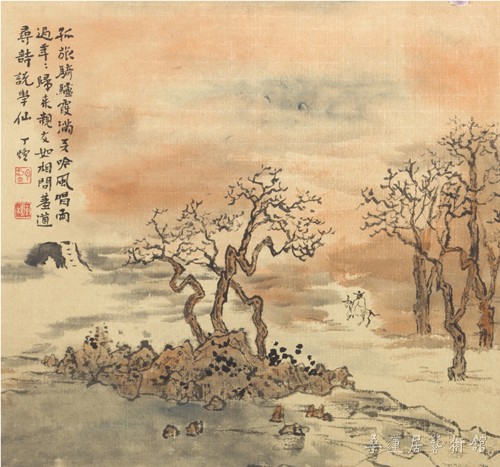 孤旅騎驢霞滿天吟風唱雨
過年〻歸來親友如相問盡道
尋詩說學仙 丁
桑蓮居藝術館